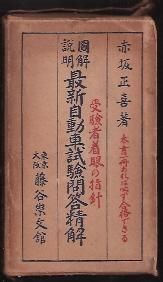 赤坂正喜著
本書一冊あれば必ず合格できる
受験者着眼の指針
圖解
説明
最新自動車試驗問答精解
東京
大阪
藤谷崇文館